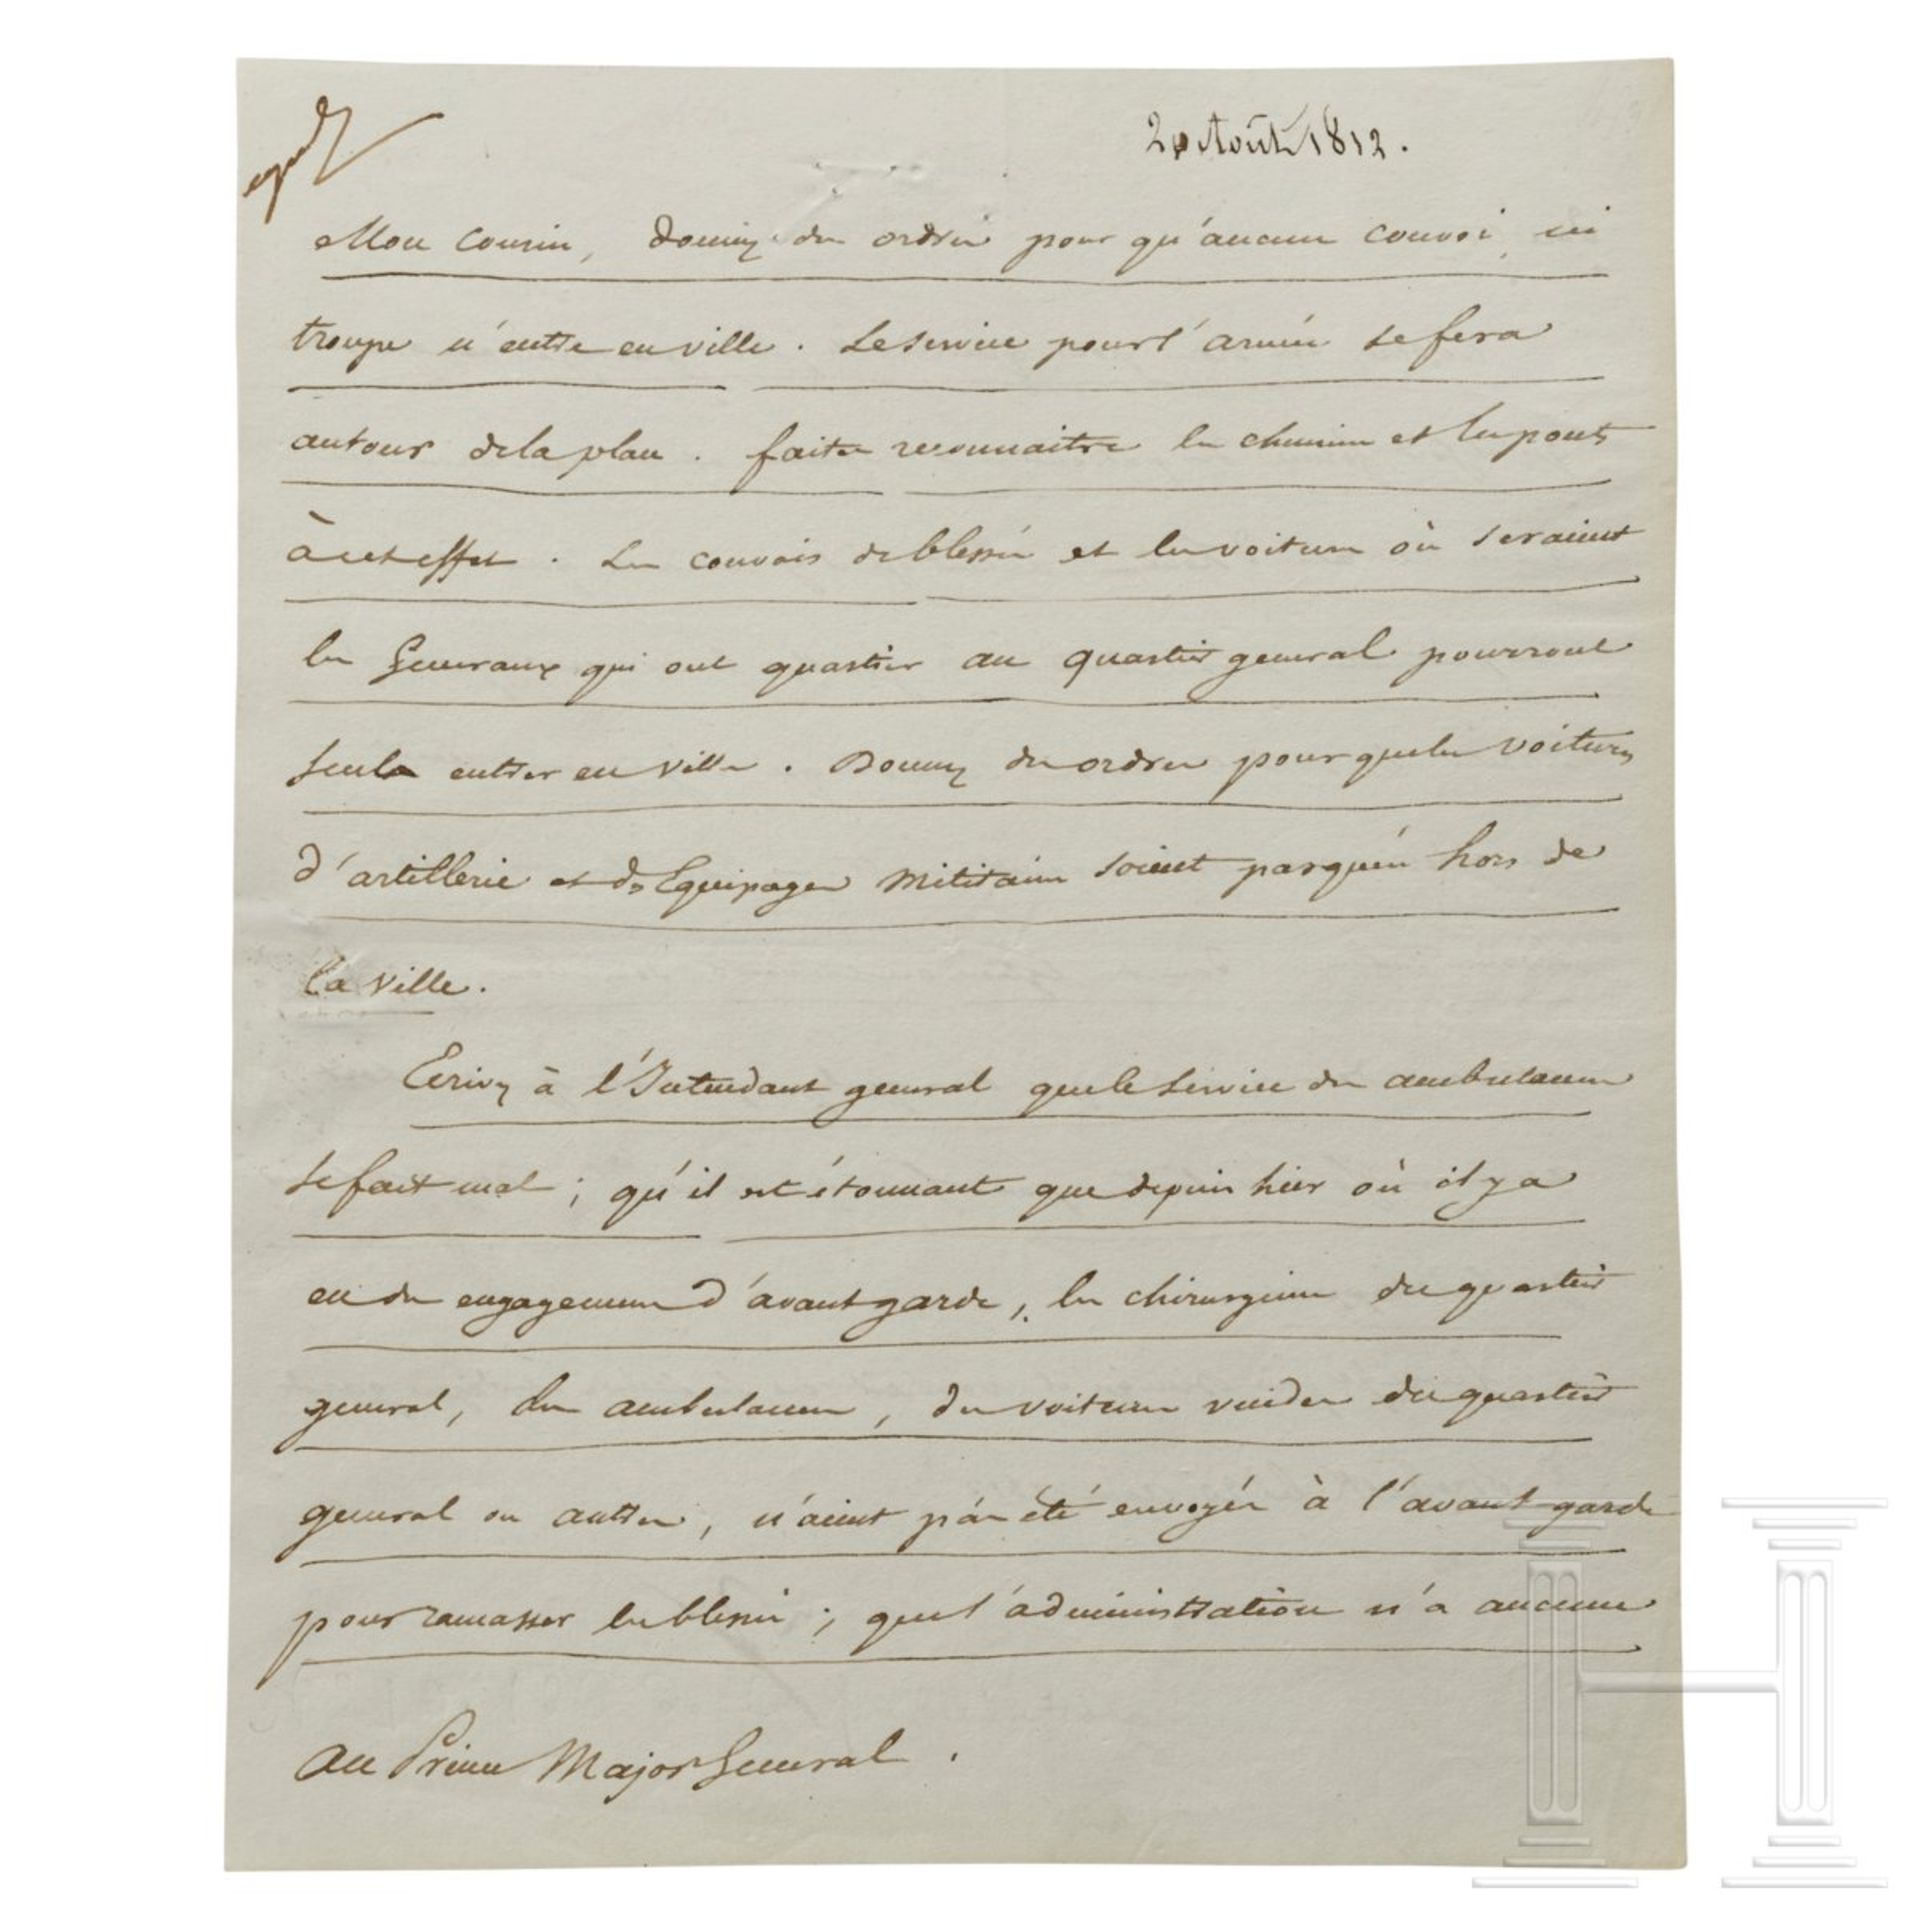 20 Août 1812.
Mon Cousin, donnez des ordres pour qu'aucun convoi, ni
troupe n'entre en ville. Le service pour l'armée se fera
autour de la place. faites reconnaitre les chemins et les ponts
à cet effet. Les convois de blessés et les voitures où seraient
les Generaux qui ont quartier au quartier general pourront
seuls entrer en ville. Donnez des ordres pour que les voitures
d'artillerie et des Equipages militaires soient parqués hors de
la ville.
Ecrivez à l'Intendant general que le service des ambulances
se fait mal; qu'il est étonnant que depuis hier où il y a
eu des engagemens d'avant garde, les chirurgiens du quartier
general, des ambulances, des voitures vuides du quartier
general ou autres, n'aient pas été envoyés à l'avant garde
pour ramasser les blessés; que l'administration n'a aucune
Au Prince Major General.